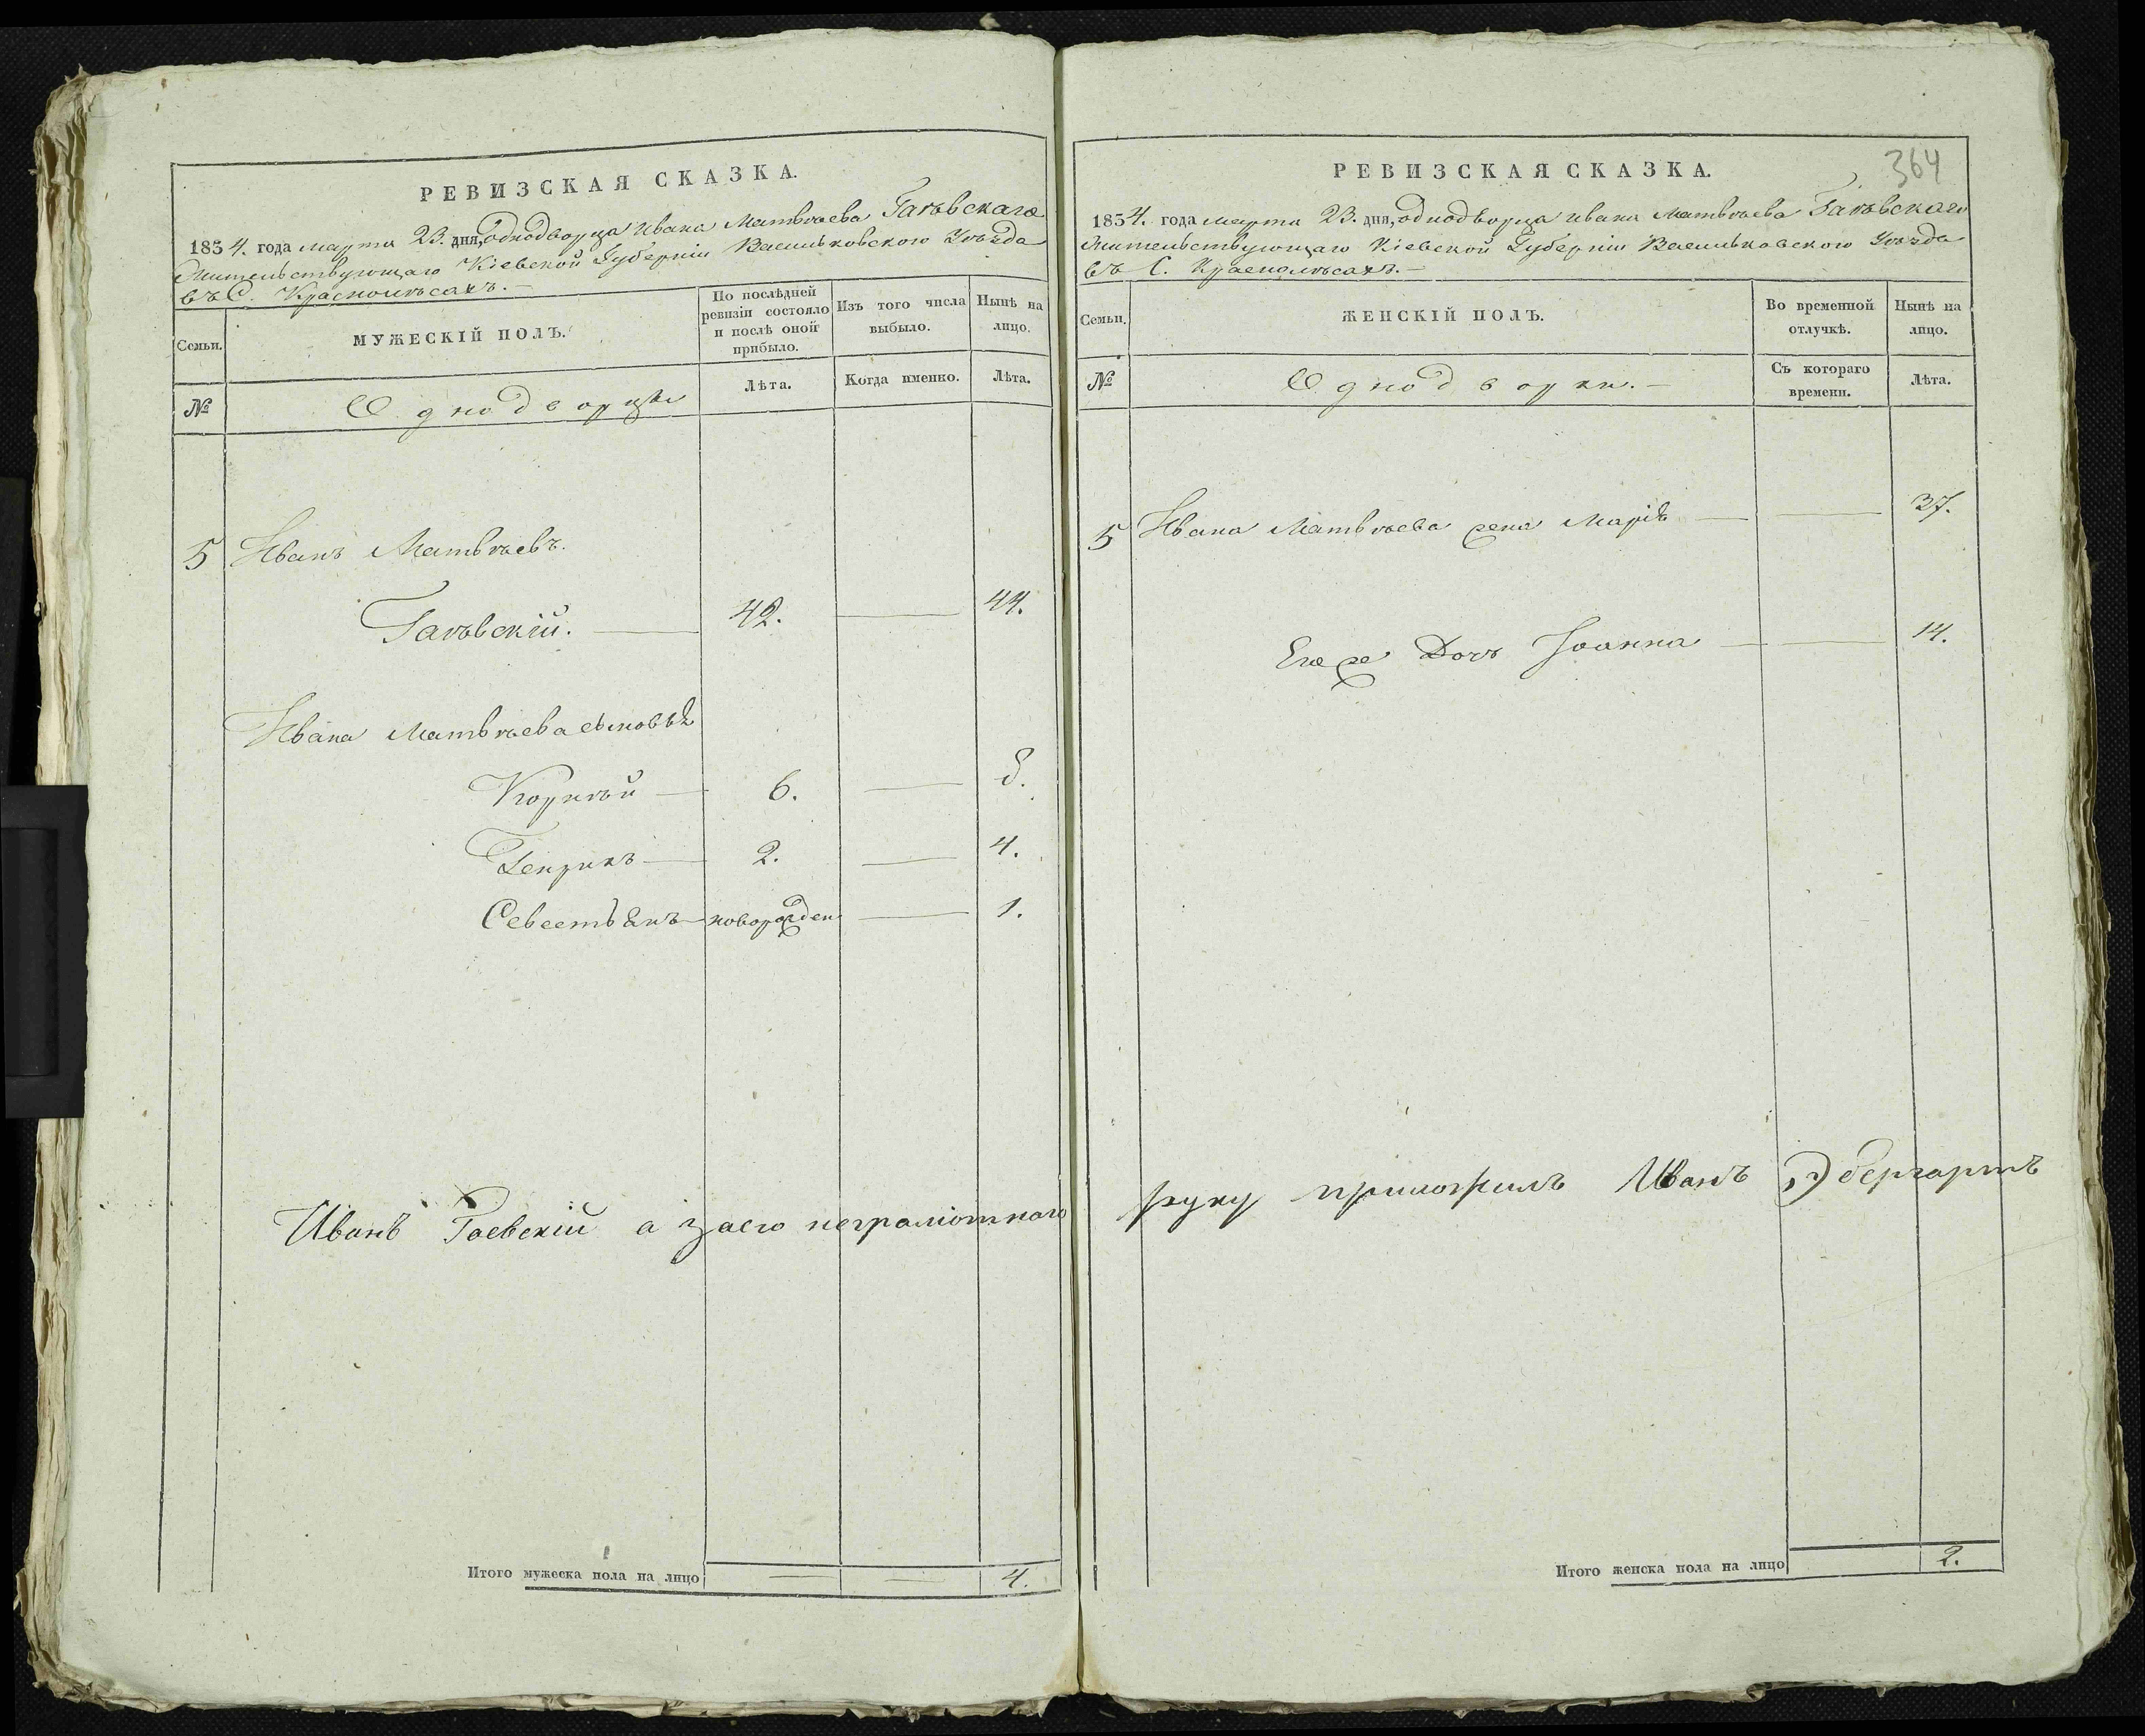 РЕВИЗСКАЯ СКАЗКА.
1834. года марта 23. дня, однодворца Ивана Матвѣева Гаѣвскаго
Жительствующаго Кіевской Губерніи Васильковскаго Уѣзда
въ С. Краснолѣсахъ.
Семьи.
МУЖЕСКІЙ ПОЛЪ.
По послѣдней ревизіи состояло и послѣ оной прибыло.
Изъ того числа выбыло.
Нынѣ на лицо.
№
Однодворцы
Лѣта.
Когда именно.
Лѣта.
5 Иванъ Матвѣевъ.
Гаѣвскій. — 42. — 44.
Ивана Матвѣева сыновья
Корнѣй — 6. — 8.
Генрикъ — 2. — 4.
Севестьянъ — новорожден — 1.
Иванъ Гаевскій а за его неграмотнаго
Итого мужеска пола на лицо — — 4.
364
РЕВИЗСКАЯ СКАЗКА.
1834. года марта 23. дня, однодворца Ивана Матвѣева Гаѣвскаго
Жительствующаго Кіевской Губерніи Васильковскаго Уѣзда
въ С. Краснолѣсахъ. —
Семьи.
ЖЕНСКІЙ ПОЛЪ.
Во временной отлучкѣ.
Нынѣ на лицо.
№
Однодворки. —
Съ котораго времени.
Лѣта.
5 Ивана Матвѣева жена Марія — — 37.
Его же Дочь Іоанна — — 14.
руку приложилъ Иванъ
Итого женска пола на лицо 2.